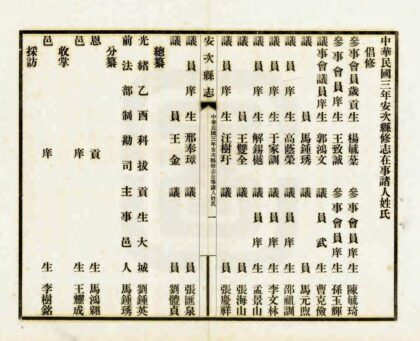 中華民國三年安次縣修志在事諸人姓氏
倡修
參事會員歲貢生楊毓棻 參事會員庠生陳毓琦
參事會員庠生王致誠 參事會員庠生孫玉輝
議事會議員庠生郭鴻文 議員武生曹克儉
議員馬鍾琇 議員馬元煦
議員庠生高蔭榮 議員庠生邵祖訓
議員于家訓 議員李文林
議員解錫樾 議員庠生孟景山
議員王雙全 議員張海山
議員庠生汪樹玗 議員張慶祥
安次縣志 中華民國三年安次縣修志在事諸人姓氏 一
議員庠生邢奉璋 議員張匯泉
議員王金 議員劉體貞
總纂
光緒乙酉科拔貢生大城劉鍾英
前法部制勘司主事邑人馬鍾琇
分纂
恩貢生馬鴻翱
邑庠生王耀成
收掌
邑庠生李樹銘
採訪